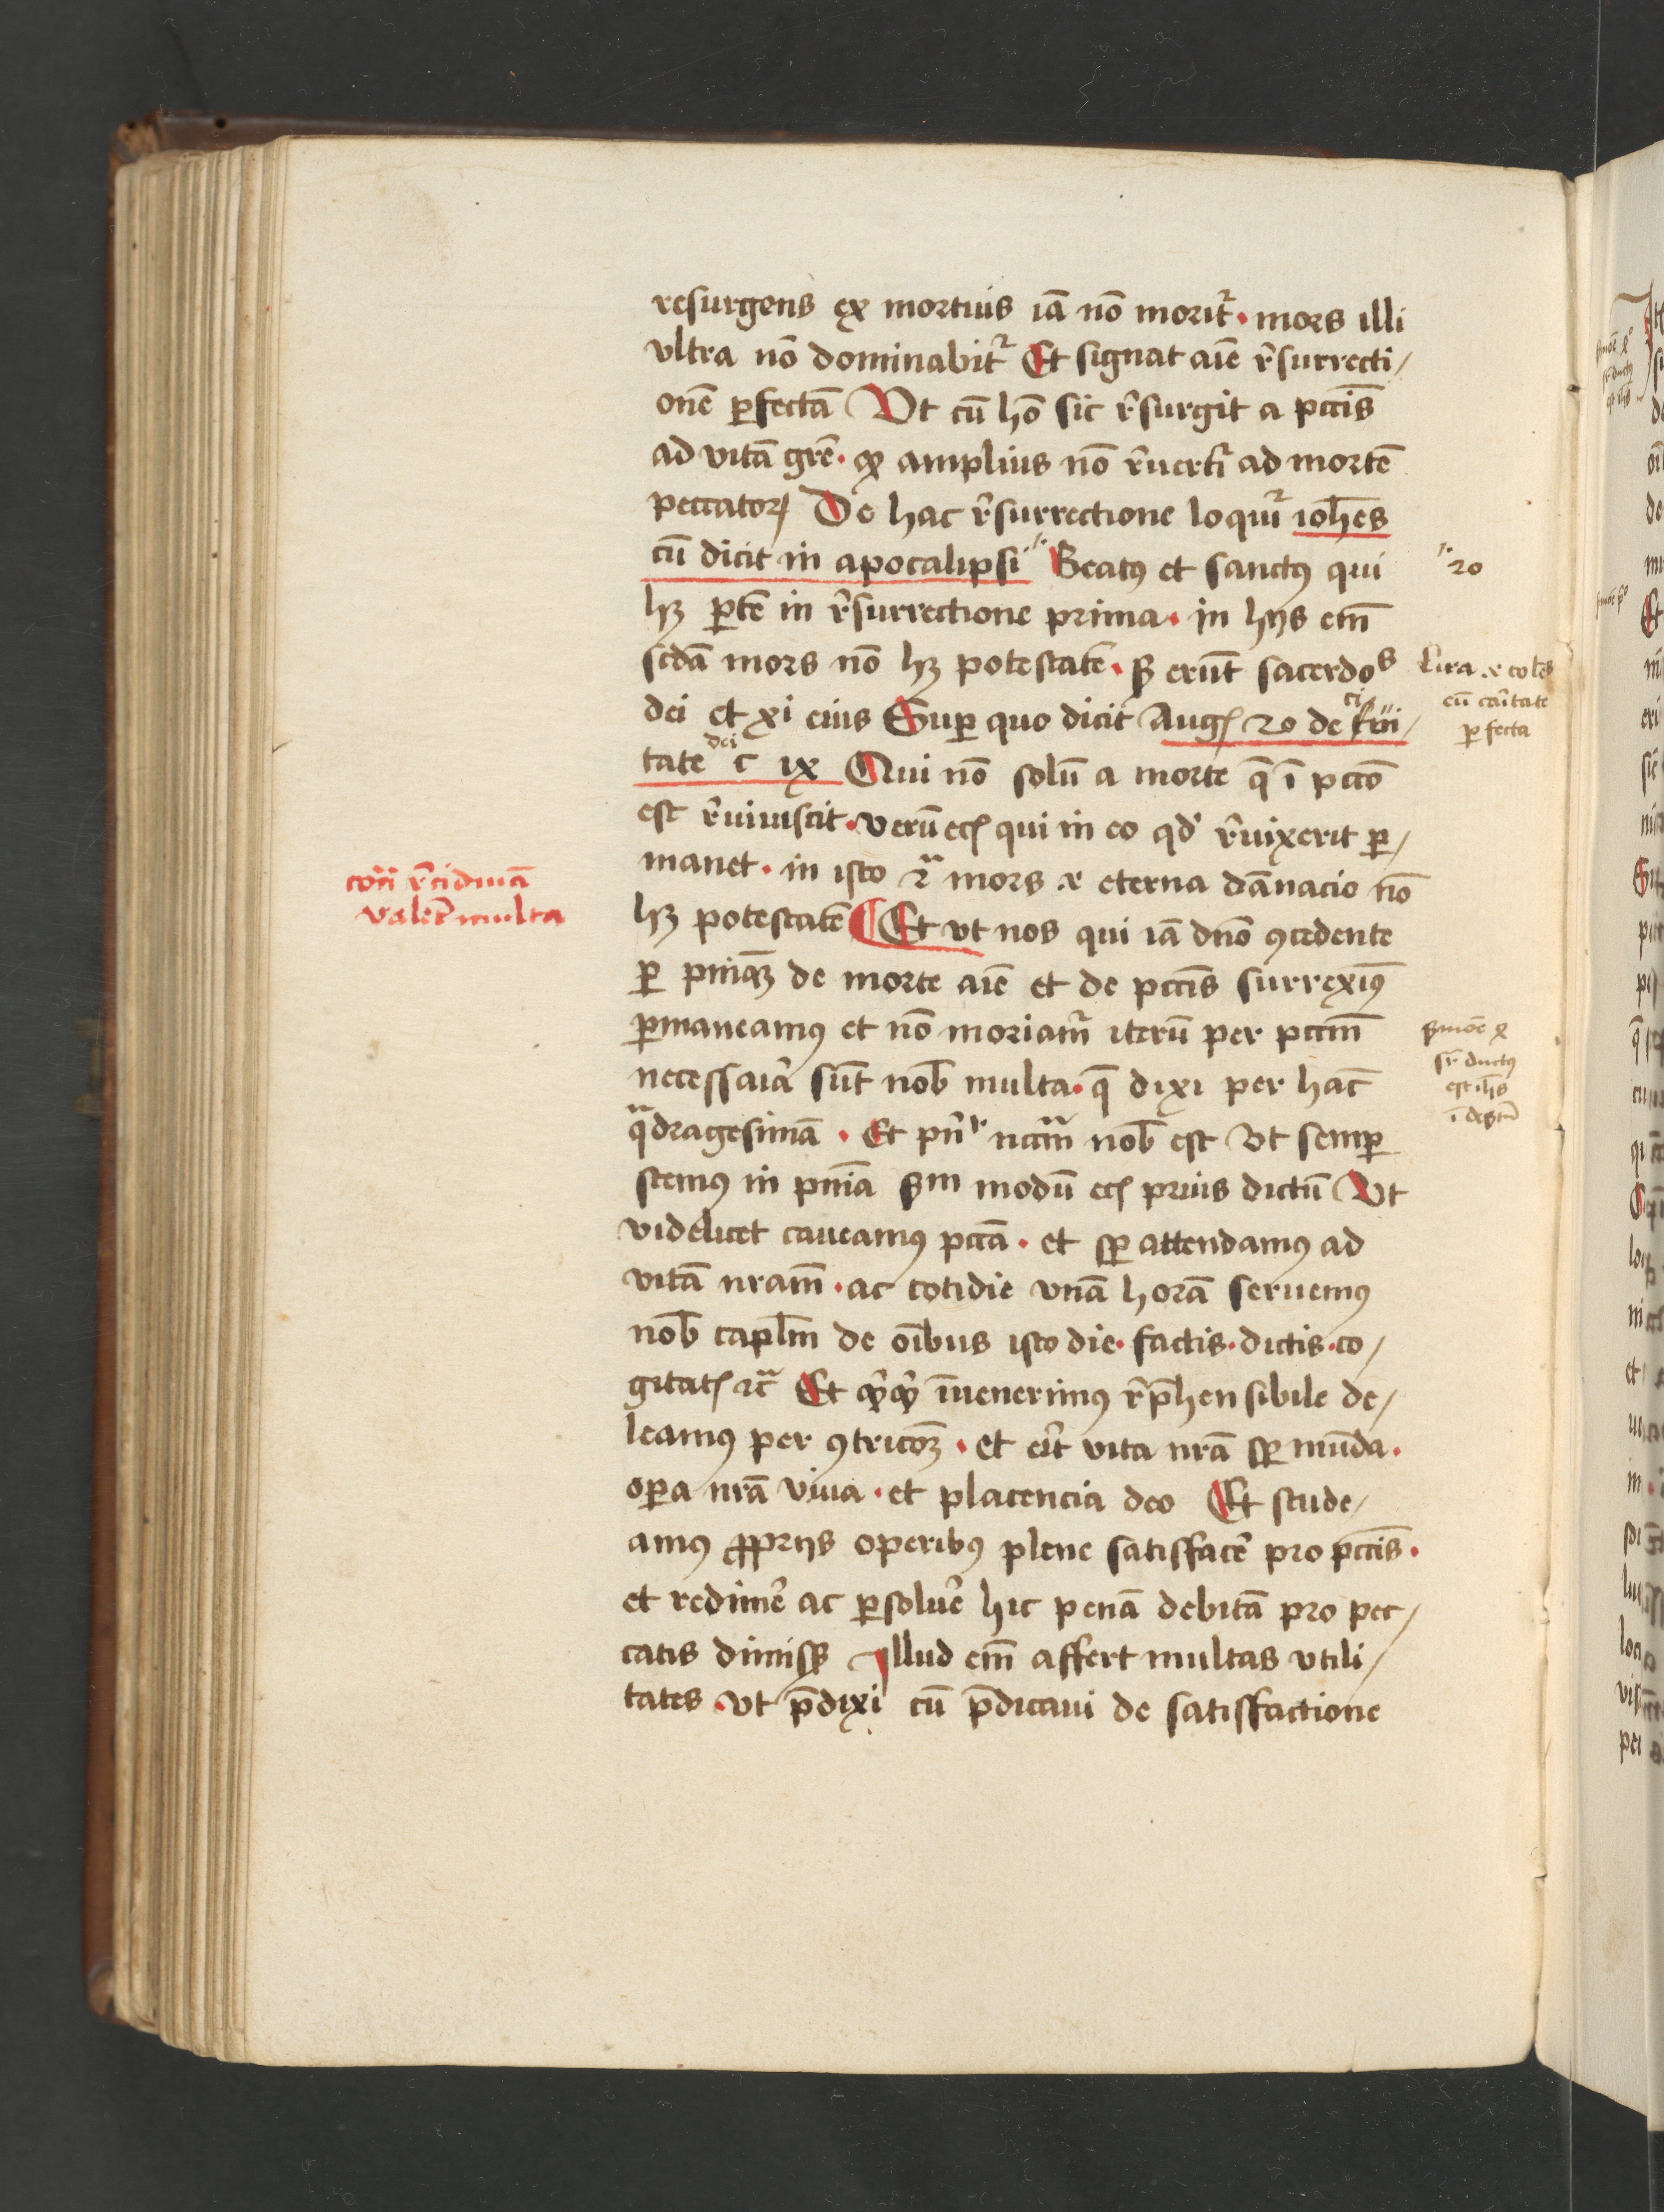 resurgens ex mortuis iā nō morit᷑ · mors illi
vltra nō dominabit᷑ Et signat aīe r̄surrecti/
onē ꝑfectā Vt cū hō sic r̄surgit a pccīs
ad vitā grē · ꝙ amplius nō r̄uerti᷑ ad mortē
peccatoꝝ De hac r̄surrectione loqui᷑ ioh̄es
cū dicit in apocalipsi Beatꝰ et sanctꝰ qui
hꝫ ꝑtē in r̄surrectione prima · in hijs em̄
scdā mors nō hꝫ potestatē · ꝫ erūt sacerdos
dei et xi eius Suꝑ quo dicit Augꝭ 20 de ciui/
tate dei c ix Qui nō solū a morte q̄ ī pccō
est r̄uiuiscit · verū ecꝭ qui in eo qd̓ r̄uixerit ꝑ/
manet · in isto 2ᵃ mors ⁊ eterna dānacio nō
hꝫ potestatē ¶ Et vt nos qui iā dnō ꝯcedente
ꝑ pn̄iaꝫ de morte aīe et de pccīs surrexīꝰ
ꝑmaneamꝰ et nō moriam᷑ iterū per pccm̄
necessaīa sūt nob̄ multa · q̄ dixi per hāc
qᵃdragesimā · Et pn̄ʳ nccm̄ nob̄ est Vt semꝑ
stemꝰ in pn̄ia ẜm modū ecꝭ prius dictū Vt
videlicet caueamꝰ pccā · et sꝑ attendamꝰ ad
vitā nram̄ · ac cotidie vnā horā seruemꝰ
nob̄ capl̄m de oībus isto die · factis · dictis · co/
gitatꝭ ⁊cᵃ Et ꝙꝙ īuenerimꝰ r̄p̄hensibile de/
leamꝰ per ꝯtricōꝫ · et eīt vita nrā sꝑ mūda ·
oꝑa nrā viua · et placencia deo Et stude/
amꝰ ꝓprijs operibꝰ plene satisfacē pro pccīs ·
et redimē ac ꝑsoluē hic penā debitā pro pec/
catis dimissꝭ Illud em̄ affert multas vtili/
tates · vt p̄dixi cū p̄dicaui de satisfactione
20
Lira
cū cāitate
ꝑfecta
cōtā r̄cidiuā
valēt multa
ẜmōe
ductꝰ
est ih̄s
ī destū